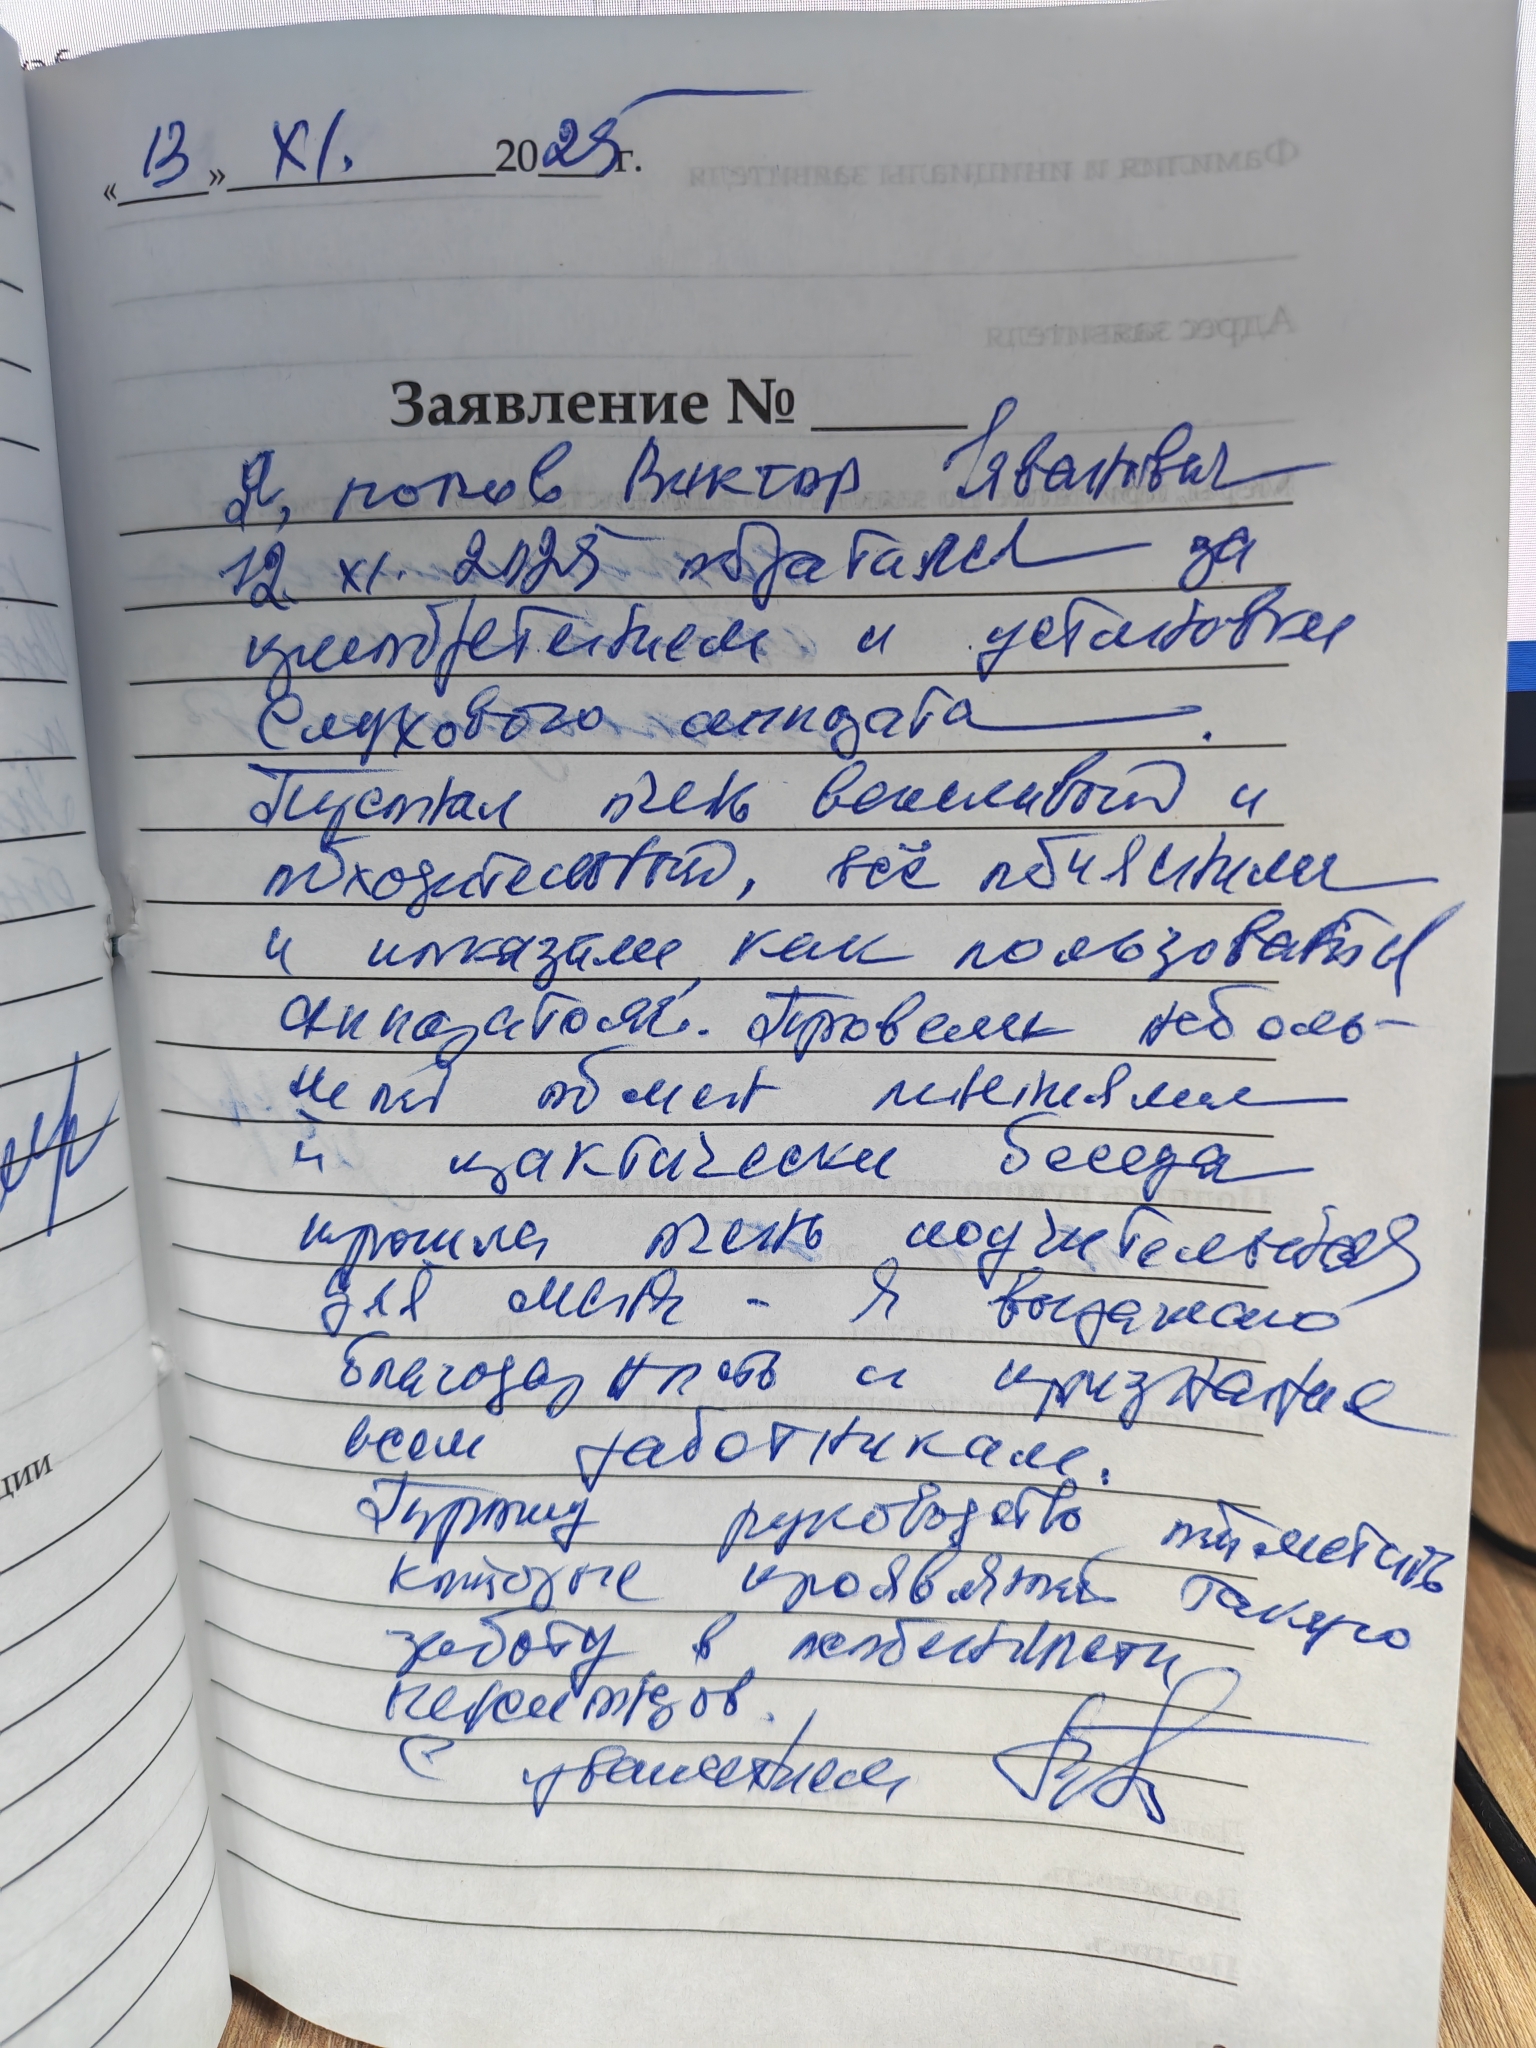 «13» XI. 2025г.
Заявление №
Я, Попов Виктор Иванович
12. XI. 2025 обратился за
приобретением и установки
слухового аппарата.
Персонал очень вежливый и
обходительный, всё объяснили
и показали, как пользоваться
аппаратом. Провели неболь-
шой обмен мнениями
и практически беседа
прошла очень поучительная
для меня - я выражаю
благодарность и признание
всем работникам.
Прошу руководство отметить
которые проявляют такую
заботу в особенности
С уважением
ции